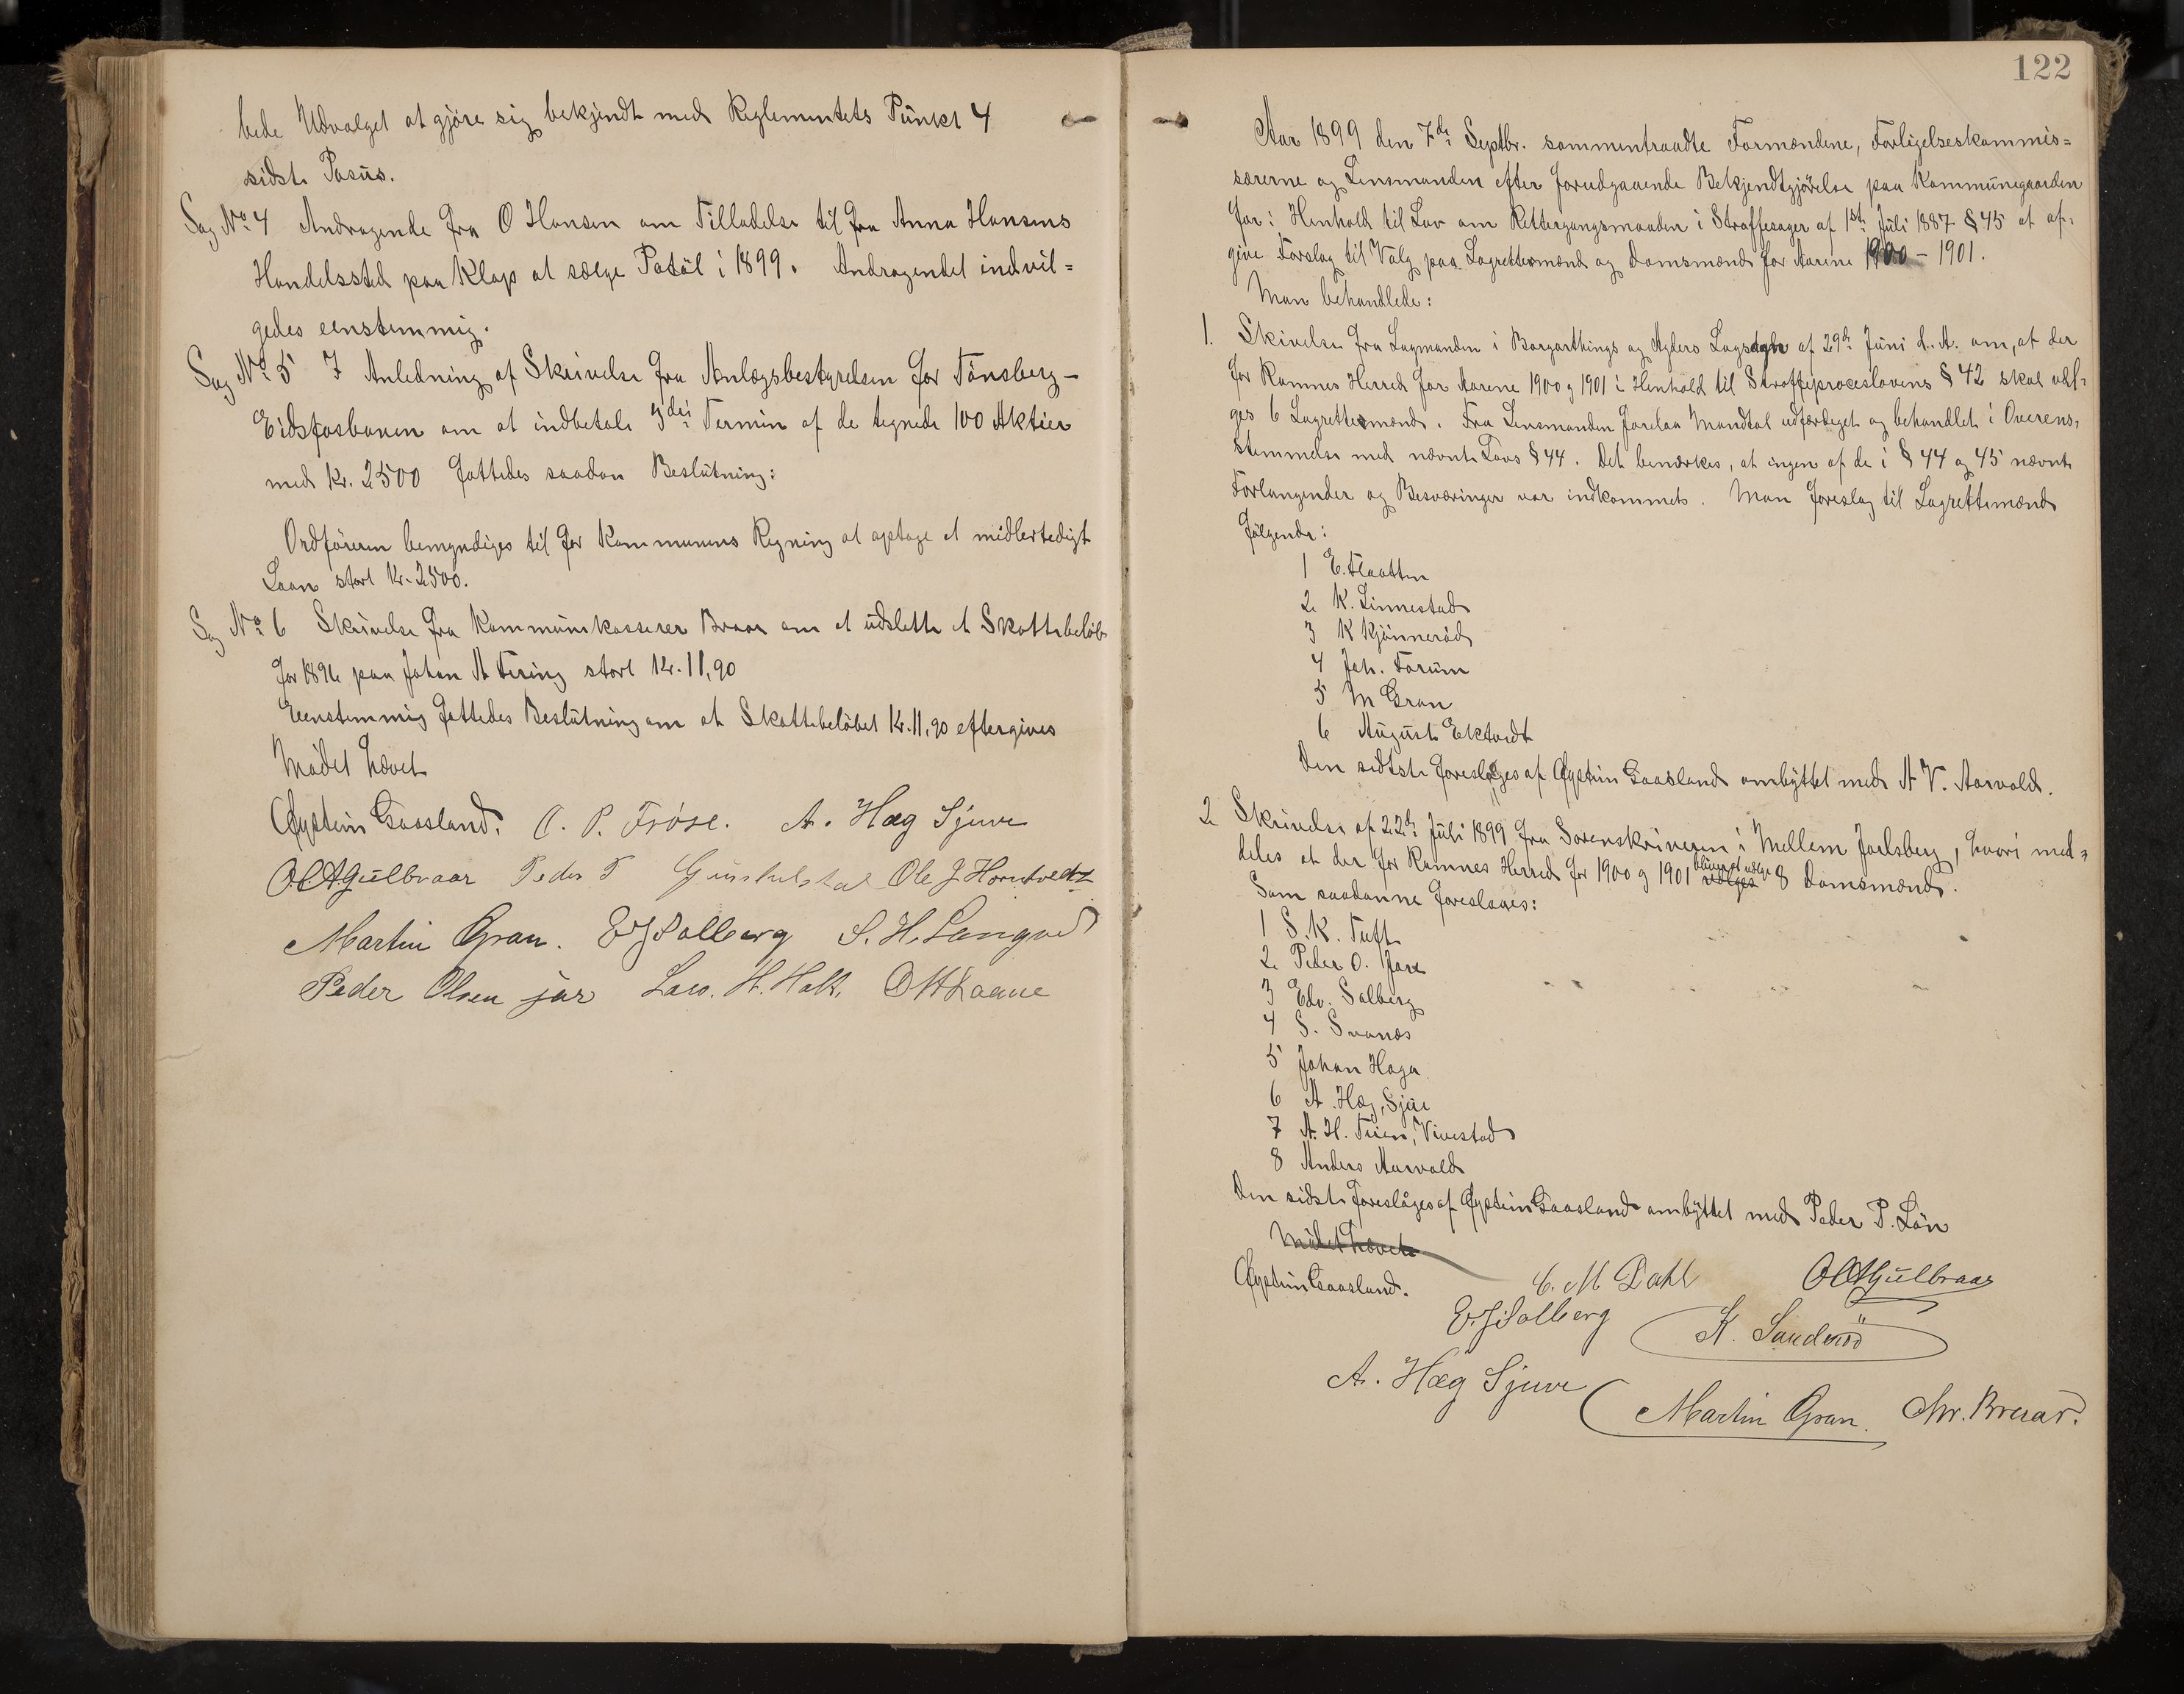 bede Udvalget at gjöre sig bekjendt med Reglementets Pünkt 4
sidste Pasüs.
Sag No 4 Andragende fra O Hansen om Tilladelse til fra Anna Hansens
Handelssted paa Klop at sælge Patöl i 1899. Andragendet indvil=
gedes eenstemmig.
Sag No 5 I Anledning af Skrivelse fra Anlægsbestyrelsen for Tönsberg-
Eidsfosbanen om at indbetale 3die Termin af de tegnede 100 Aktier
med Kr. 2500 fattedes saadan Beslütning:
Ordföreren bemyndiges til for Kommunens Regning at optage et midlertidigt
Laan stort Kr. 2500.
Sag No 6 Skrivelse fra Kommünekasserer Braar om at üdslette et Skattebelöb
for 1896 paa Johan A Firing stort Kr. 11,90
Eenstemmig fattedes Beslütning om at Skattebelöbet Kr. 11,90 eftergives
Mödet hævet
Øystein Gaasland. O. P. Fröse. A. Hæg Sjuve
Peder T Ole J Horntvedt
Martin Gran. E Solberg S. H. Langved
Peder Olsen jar Law. H. Holt.
122
Aar 1899 den 7de Septbr. sammentraadte Formændene, Forligelseskommis=
særerne og Lensmanden efter forudgaaende Bekjendtgjörelse paa Kommünegaarden
for i Henhold til Lov om Rettergangsmaaden i Straffesager af 1ste Jüli 1887 § 45 at af=
give Forslag til Valg paa Lagrettesmænd og Domsmænd for Aarene 1900 - 1901.
Man behandlede:
1. Skrivelse fra Lagmanden i Borgarthings og Agders Lagsogn af 29de Jüni d. A. om, at der
for Ramnes Herred for Aarene 1900 g 1901 i Henhold til Straffeproceslovens § 42 skal udf=
ges 6 Lagrettesmænd. Fra Lensmanden forelaa Mandtal udfærdiget og behandlet i Overens=
stemmelse med nævnte Lovs § 44. Det bemærkes, at ingen af de i § 44 og 45 nævnte
Forlangender og Besværinger var indkommet. Man foreslog til Lagrettemænd
fölgende:
1 E. Flaatten
2 K. Linnestad
3 K Kjönneröd
4 Joh. Forüm
5 M Gran
6 Aügüst Ektvedt
Den sidste foreslåges af Øystein Gaasland ombyttet med A V. Aarvold.
2 Skrivelse af 22de Jüli 1899 fra Sorenskriveren i Mellem Jarlsberg, hvori med=
deles at der for Ramnes Herred for 1900 g 1901 udlges bliver at udlge 8 Domsmænd.
Som saadanne foreslaaes:
1 S. K. Tuft
2 Peder O. Jare
3 Edv. Solberg
4 S. Svanæs
5 Johan Haga
6 A. Hæg, Sjüe
7 A. H. Teien, Vivestad
8 Anders Aarvold
Den sidste foreslåges af Øystein Gaasland ombyttet med Peder P. Lön
Mödet hævet
Øystein Gaasland. C. M Dahl
E Solberg K. Sanderöd
A. Hæg Sjuve Martin Gran. Chr. Brerar.